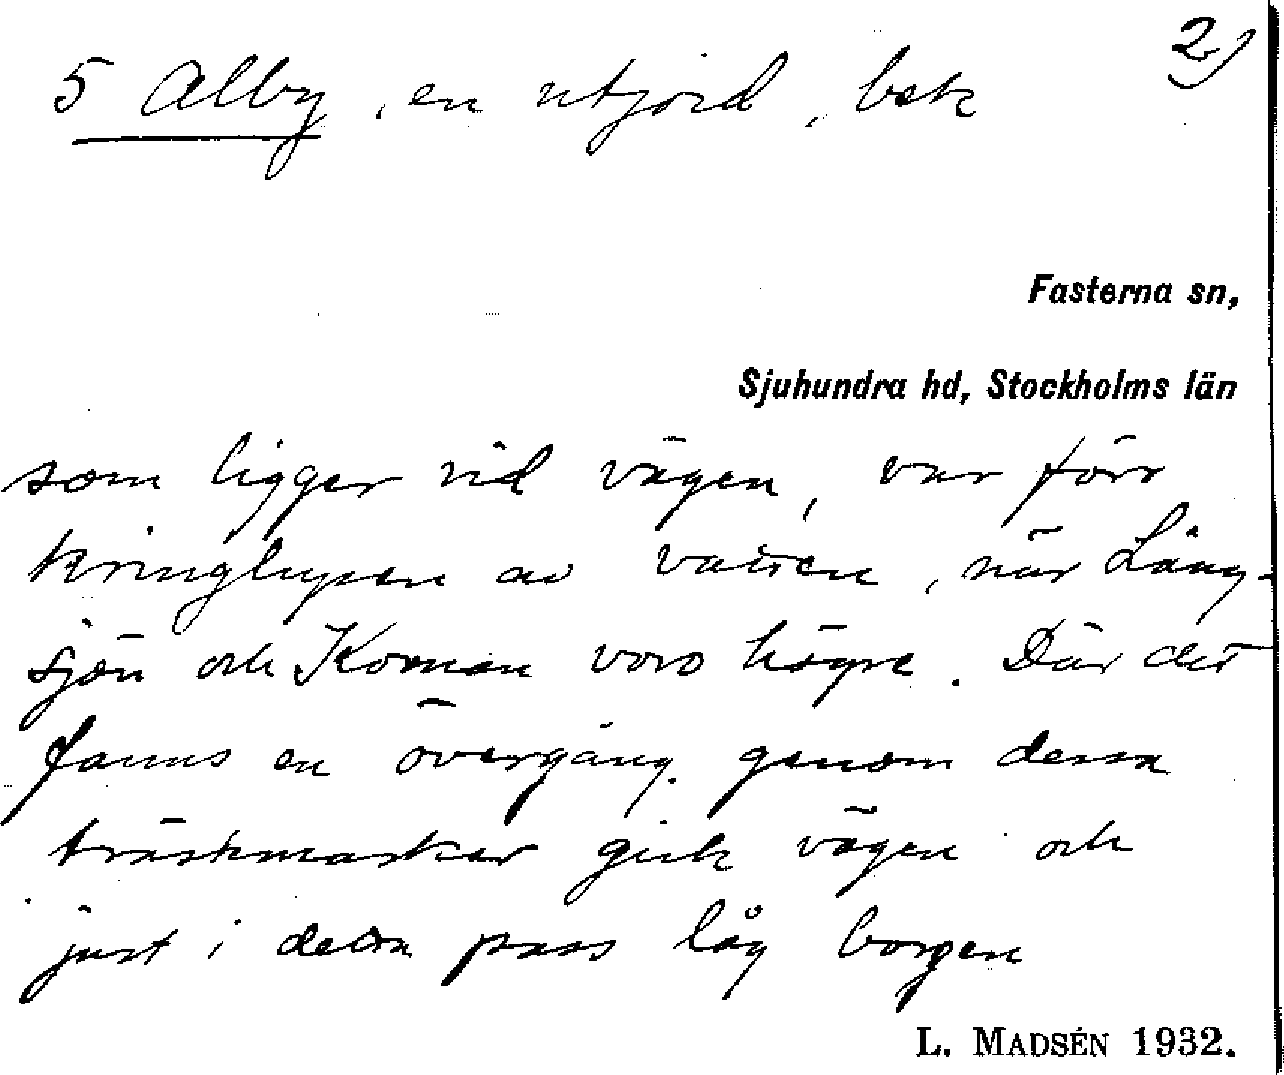 2)
5 Alby, en utjord, bek
Fasterna sn,
Sjuhundra hd, Stockholms län
som ligger vid vägen, var förr
kringlupen av vatten, när Lång-
sjön och Kornan voro högre. Där det
fanns en övergång genom dessa
träskmarker gick vägen och
just i detta pass låg borgen
L. MADSÉN 1932.